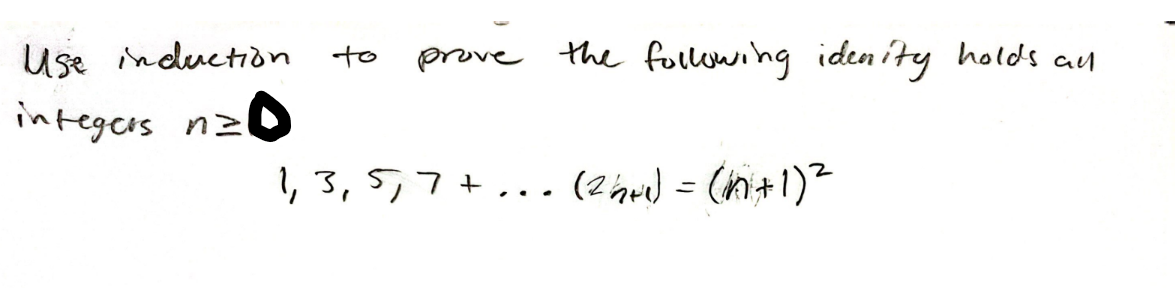 Use induction to prove the following idenity holds all
integers n≥0
1, 3, 5, 7 + ... (2n+1) = (n+1)²